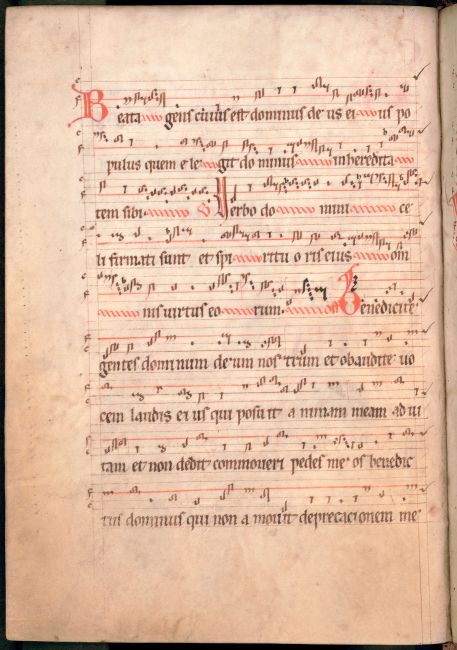 Beata gens cuius est dominus de us ei us po
pulus quem e le git do minus in heredita
tem sibi V Verbo do mini ce
li firmati sunt et spi ritu o ris eius om
nis virtus eo rum Benedicite
gentes dominum deum nostrum et obaudite uo
cem laudis ei us qui posuit animam meam ad ui
tam et non dedit commoueri pedes me os benedic
tus dominus qui non a mouit deprecacionem me